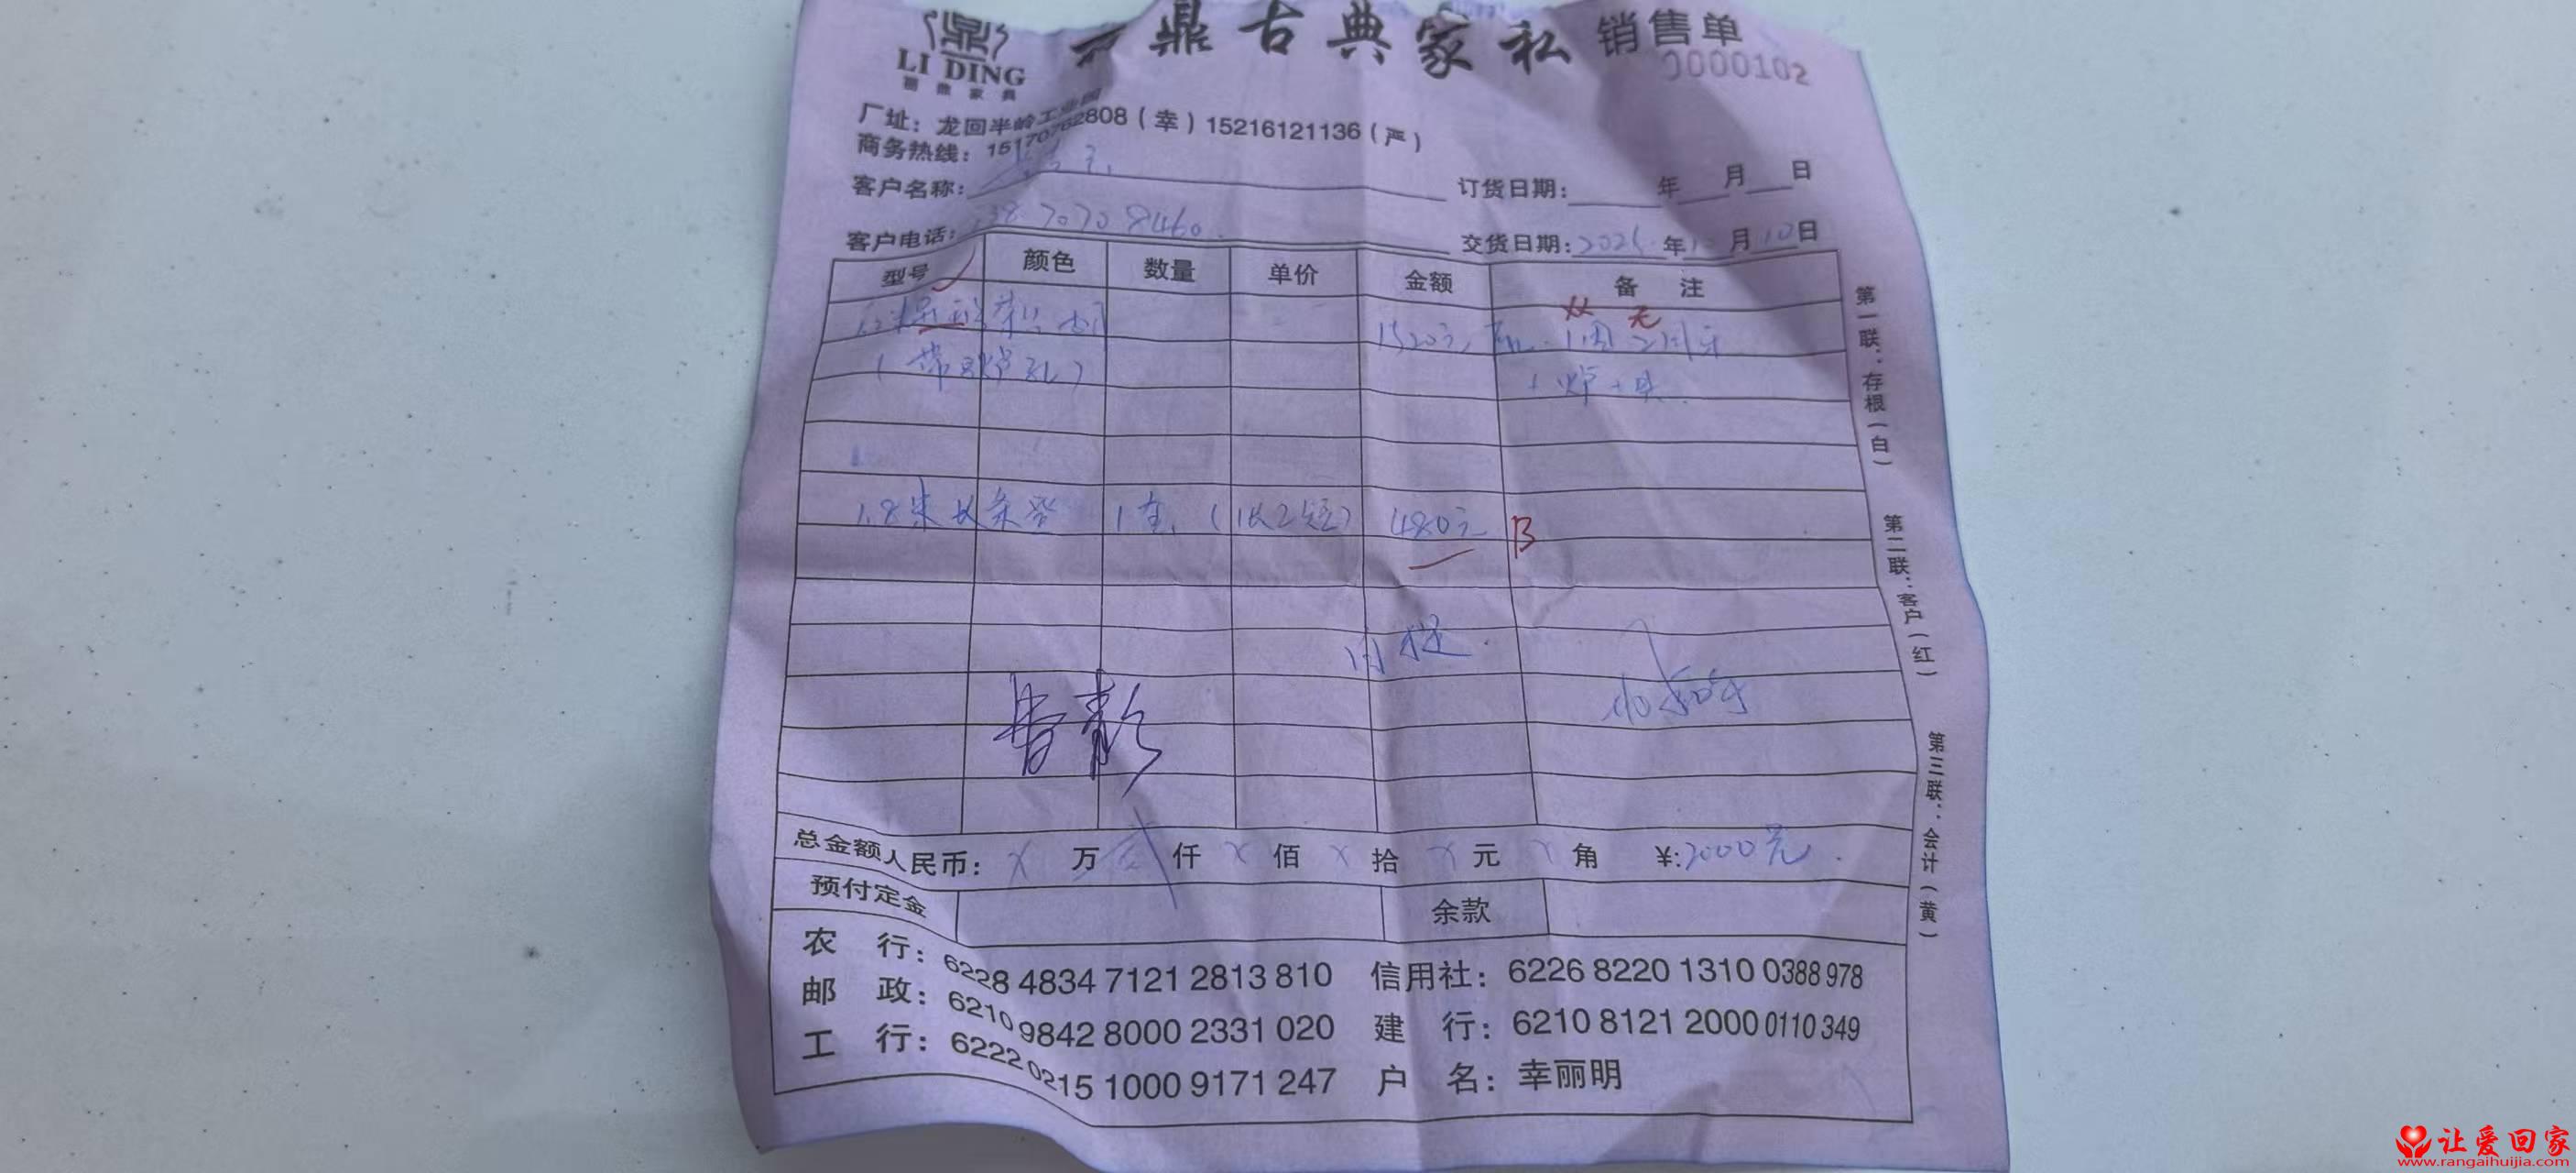 鼎古典家私 销售单
LI DING
丽鼎家具
0000102
厂址：龙回半岭工业园
商务热线：15170762808（幸）15216121136（严）
客户名称：
订货日期： 年 月 日
客户电话：138 7070 8460
交货日期：2025年 月10日
型号 颜色 数量 单价 金额 备注
1520元
（带 孔）
1.8米长条凳 1套（1长2短） 480元 B
自提
总金额人民币：X万 仟X佰X拾X元X角 ¥:2000元
预付定金 余款
农行：6228 4834 7121 2813 810 信用社：6226 8220 1310 0388 978
邮政：6210 9842 8000 2331 020 建行：6210 8121 2000 0110 349
工行：6222 0215 1000 9171 247 户名：幸丽明
第一联：存根（白）
第二联：客户（红）
第三联：会计（黄）
让爱回家
www.rangaihuijia.com